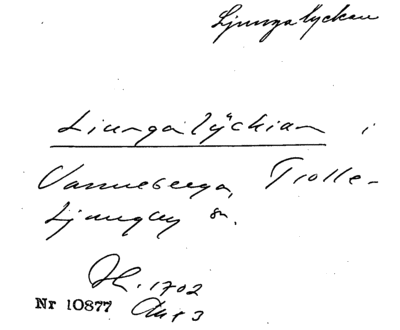 Ljungalyckan
Liungalÿckian i
Vanneberga, Trolle-
Ljungby sn.
Jb. 1702
Nr 10877